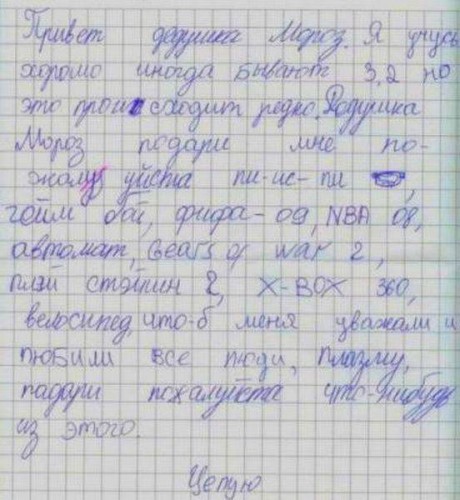 Привет дедушка Мороз. Я учусь
хорошо иногда бывают 3,2 но
это происходит редко. Дедушка
Мороз подари мне по-
жалу уйста пи-ис-пи ,
гейм бой, фифа-09, NBA 08,
автомат, Gears of war 2,
плэй стэйшин 2, X-BOX 360,
велосипед, что-б меня уважали и
любили все люди, плазму,
падари пожалуйста что-нибудь
из этого.
Целую